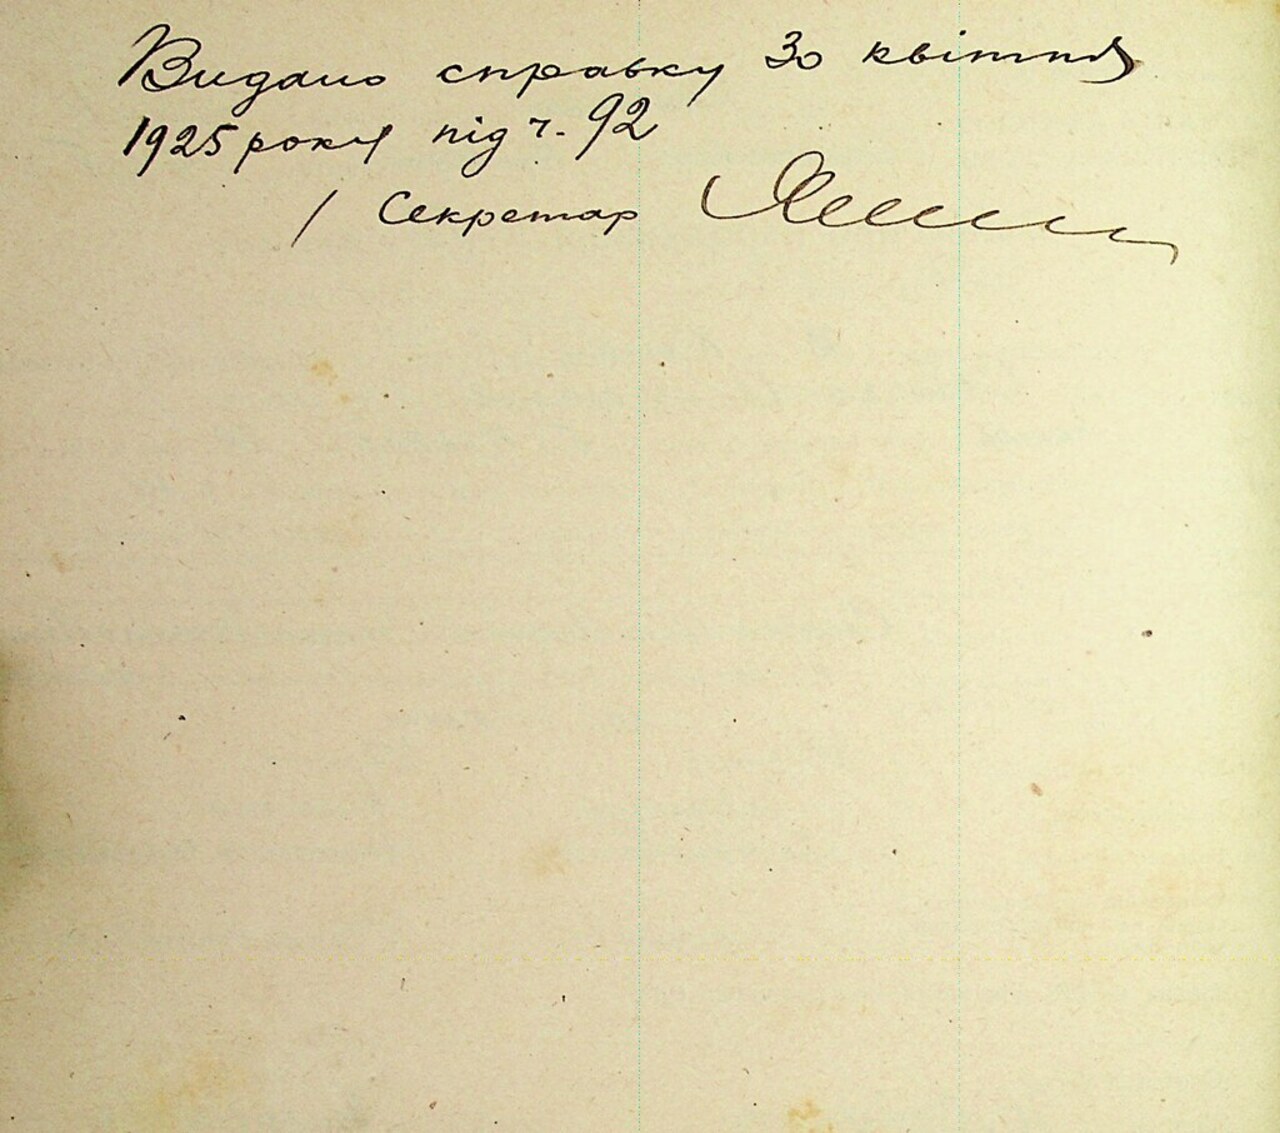 Видано справку 30 квітня
1925 року під ч. 92
/ Секретар